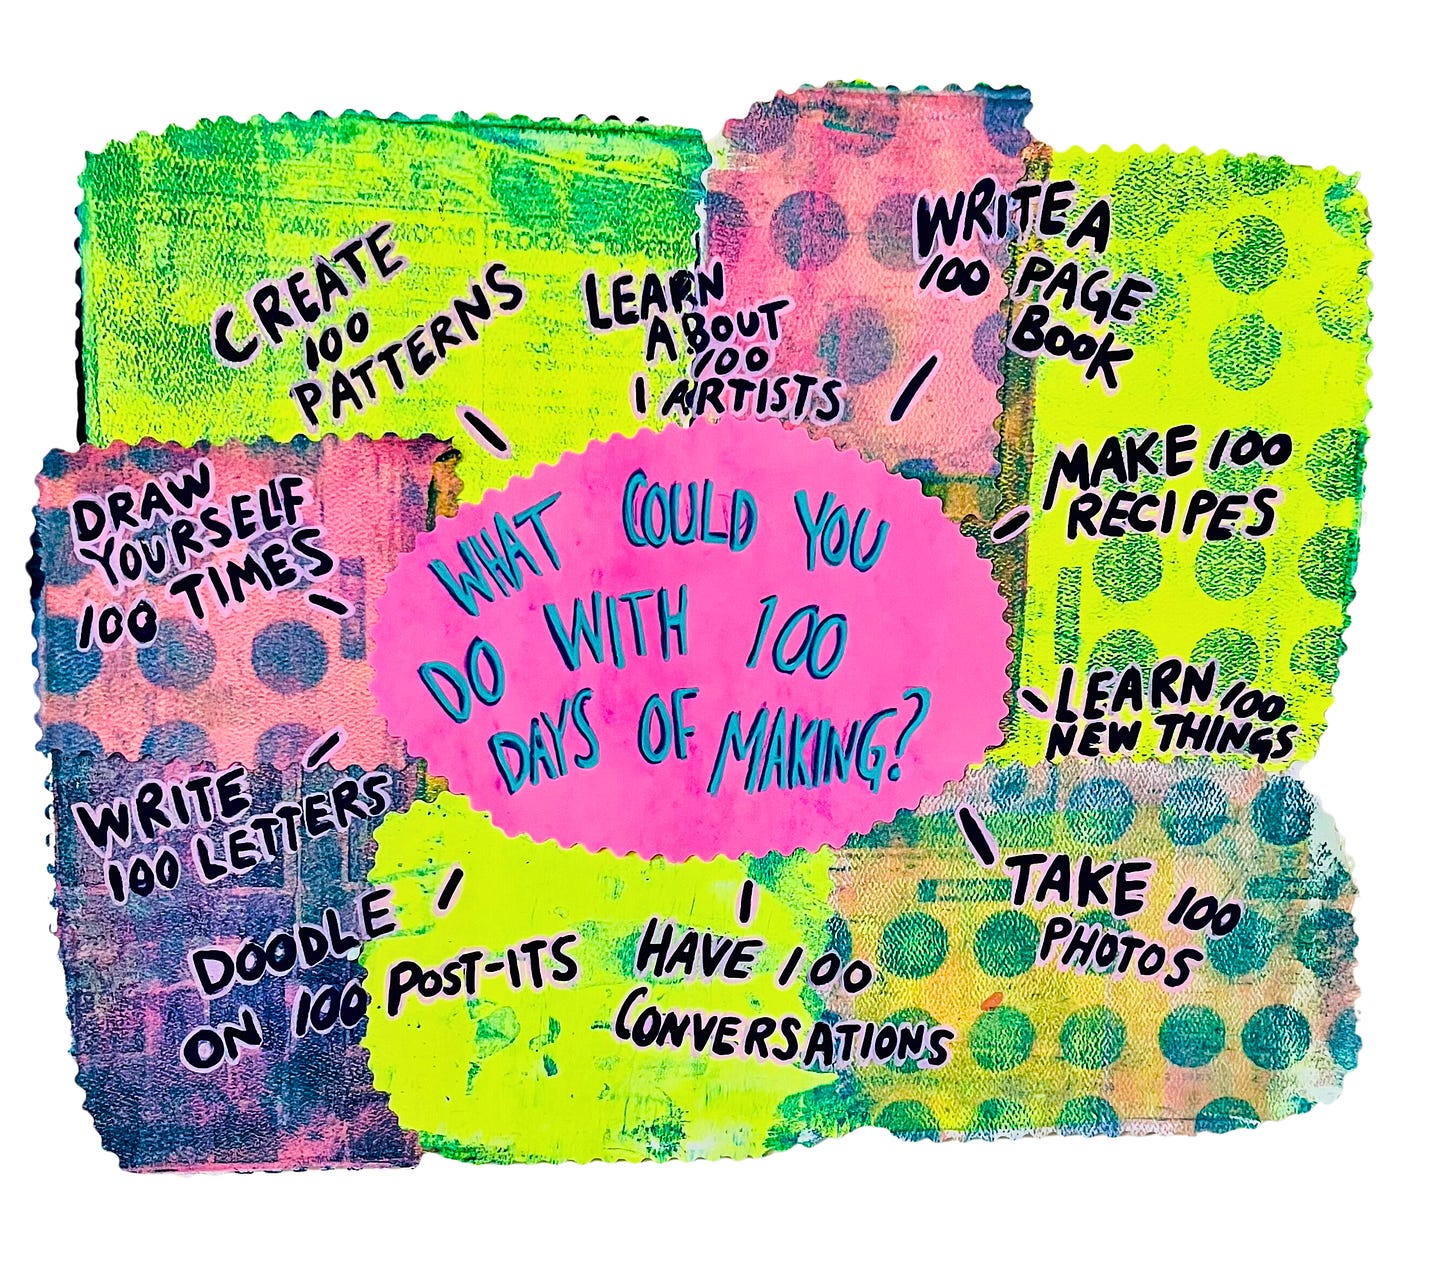 WHAT COULD YOU
DO WITH 100
DAYS OF MAKING?
CREATE
100
PATTERNS
LEARN
ABOUT
100
ARTISTS
WRITE A
100 PAGE
BOOK
MAKE 100
RECIPES
LEARN 100
NEW THINGS
TAKE 100
PHOTOS
HAVE 100
CONVERSATIONS
DOODLE
ON 100 POST-ITS
WRITE
100 LETTERS
DRAW
YOURSELF
100 TIMES